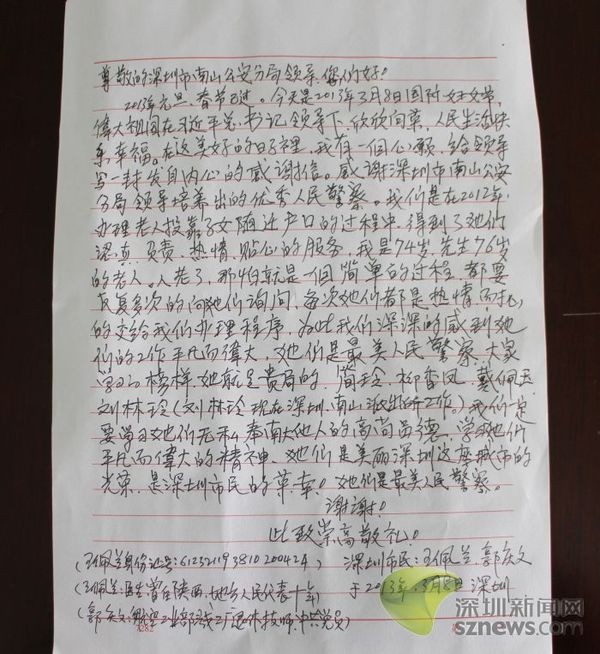 尊敬的深圳市南山公安分局领导,您们好!
2013年元旦、春节已过。今天是2013年3月8日国际妇女节,
偉大祖国在习近平总书记领导下,欣欣向荣,人民生活快
乐幸福。在这美好的日子裡,我有一個心願,给领导
写一封发自内心的感谢信。感谢深圳市南山公安
分局领导培养出的优秀人民警察。我们是在2012年
办理老人投靠子女随迁户口的过程中,得到了她们
認真、负责、热情、贴心的服务,我是74岁,先生76岁
的老人。人老了,那怕就是一個简单的过程,都要
反复多次的向她们询问,每次她们都是热情
的交给我们办理程序,为此我们深深的感到她
们的工作平凡而偉大,她们是最美人民警察,大家
学习的榜样,她就是贵局的:简玲,柳香凤,戴佩玉,
刘林玲(刘林玲现在深圳南山派出所工作。)我们一定
要学习她们无私奉献他人的高尚品德,学习她们
平凡而偉大的精神,她们是美丽深圳这座城市的
光荣,是深圳市民的荣幸!她们是最美人民警察。
谢谢!
此致崇高敬礼!
深圳市民:王佩兰 郭庆文
于2013年3月8日 深圳
(王佩兰身份证号:
(王佩兰:医生曾在陕西 地方人民代表十年)
(郭庆文: 退休技师,中共党员)
深圳新闻网
sznews.com